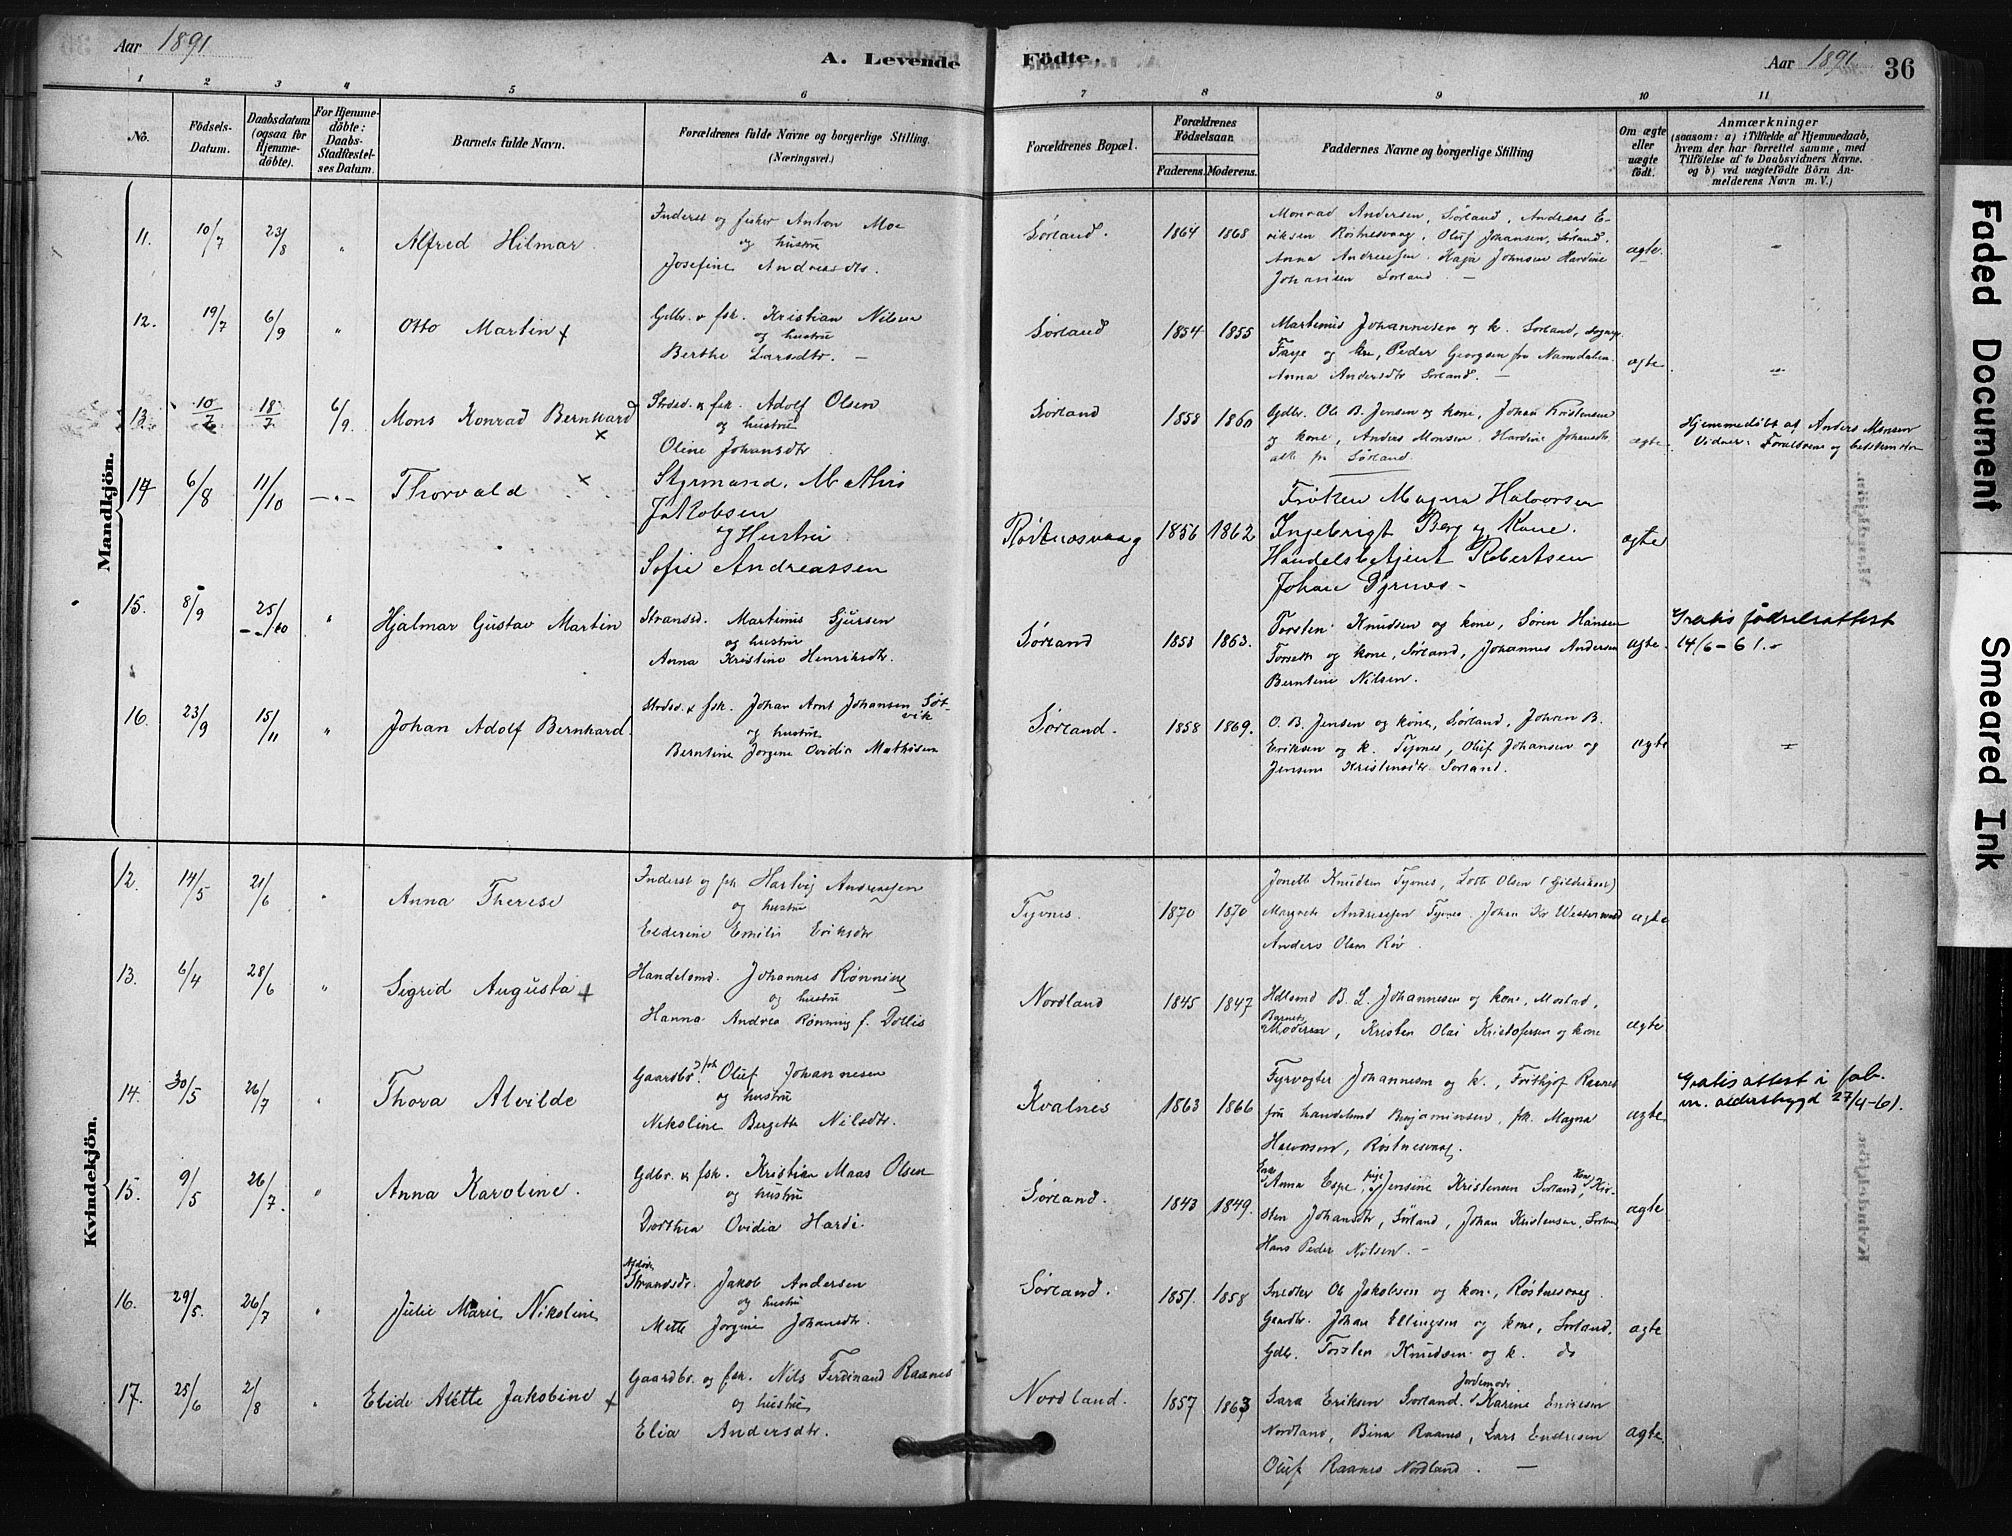 Aar 1891
A. Levende Födte.
Aar 1891
36
1 2 3 4 5 6 7 8 9 10 11
No.
Födsels-
Datum.
Daabsdatum
(ogsaa for
Hjemme-
döbte).
For Hjemme-
döbte:
Daabs-
Stadfæstel-
ses Datum.
Barnets fulde Navn.
Forældrenes fulde Navne og borgerlige Stilling.
(Næringsvei.)
Forældrenes Bopæl.
Forældrenes
Födselsaar.
Faderens. Moderens.
Faddernes Navne og borgerlige Stilling
Om ægte
eller
uægte
født.
Anmærkninger
(saasom: a) i Tilfælde af Hjemmedaab,
hvem der har forrettet samme, med
Tilföielse af to Daabsvidners Navne.
og b) ved uægtefödte Börn An-
melderens Navn m. V.)
Mandkjön.
11. 10/7 23/8 " Alfred Hilmar.
Inderst og fisker Anton Moe
og hustru
Josefine Andreasdtr.
Sørland. 1864 1868
Monrad Andersen, Sørland, Andreas E-
riksen Røstnesvaag, Oluf Johansen, Sørland.
Anna Andreasen. Haja Johnsen Hardine
Johansen Sørland. —
ægte.
12. 19/7 6/9 " Otto Martin +
Gdbr. & fsk. Kristian Nilsen
og hustru
Berthe Larsdtr. —
Sørland 1854 1855
Martinus Johannesen og k. Sørland,
og kone, Peder Georgsen fra Namdalen.
Anna Andersdtr Sørland. —
ægte
13. 10/7 18/7 6/9. Mons Konrad Bernhard ×
Strdsd. & fsk. Adolf Olsen
og hustru
Oline Johansdtr
Sørland 1858 1860
Gdbr. Ole B. Jensen og kone, Johan Kristensen
og kone, Anders Monsen, Hardine Johansdtr
alle fra Sørland.
ægte
Hjemmedøbt af Anders Monsen
Vidner: Forældrene og
14 6/8 11/10 — " — Thorvald ×
Styrmand, Mathis
Jakobsen
og Hustru
Sofie Andreassen
Røstnesvaag 1856 1862
Frøken Magna Halvorsen
Ingebrigt Berg og Kone.
Handelsbetjent Robertsen
Johan
ægte
15. 8/9 25/10 " Hjalmar Gustav Martin
Strandsd. Martinus Sjursen
og hustru
Anna Kristine Henriksdtr.
Sørland 1853 1863.
Torsten Knudsen og kone, Søren Hansen
Forseth og kone, Sørland, Johannes Andersen
Berntine Nilsen.
ægte.
Gratis fødselsattest
14/6-61.
16. 23/9 15/11 " Johan Adolf Bernhard.
Strdsd. & fsk. Johan Arnt Johansen Søt-
vik
og hustru
Berntine Jorgine Ovidia Mathisen
Sørland. 1858 1869.
O. B. Jensen og kone, Sørland, Johan B.
Eriksen og k. Tyvnes, Oluf Johansen og
Jensine Kristensdtr. Sørland.
ægte
Kvindekjön.
12. 14/5 21/6 " Anna Therese
Inderst og fsk Hartvig Andreasen
og hustru
Elderine Emilie Eriksdtr
Tyvnes. 1870 1870
Jonette Knudsen Tyvnes, Lott Olsen
Margrete Andreasen Tyvnes. Johan Kr
Anders Olsen Røv.
ægte
13. 6/4 28/6 " Sigrid Augusta +
Handelsmd. Johannes Rønning
og hustru
Hanna Andrea Rønning f. Dollis
Nordland 1845 1847
Hdlsmd B. L. Johannesen og kone, Mostad,
Barnets
Moderen, Kristen Olai Kristofersen og kone
ægte
14. 30/5 26/7 " Thora Alvilde
Gaardbr. & fsk Oluf Johannesen
og hustru
Nikoline Bergette Nilsdtr.
Kvalnes 1863 1866
Fyrvogter Johannesen og k., Frithjof Raanes
fru handelsmd Benjaminsen, frk. Magna
Halvorsen, Røstnesvaag.
ægte
Gratis attest i fab.
m. alderstrygd 27/4-61.
15. 9/5 26/7. " Anna Karoline.
Gdbr. & fsk. Kristian Maas Olsen
og hustru
Dorthea Ovidia Hardi.
Sørland. 1843 1849.
Enke Anna Espe, pige Jensine Kristensen Sørland, Kone Kir-
sten Johansdtr, Sørland, Johan Kristensen, Sørland
Hans Peder Nilsen. —
ægte
16. 29/5. 26/7 " Julie Marie Nikoline
Strandsdr. Jakob Andersen
og hustru
Mette Jorgine Johansdtr.
Sørland. 1851. 1858
Snedker Ole Jakobsen og kone, Røstnesvaag.
Gaardbr. Johan Ellingsen og kone, Sørland,
Gdbr. Torsten Knudsen og k. do
ægte
17. 25/6 2/8 " Elide Alette Jakobine +
Gaardbr. og fsk. Nils Ferdinand Raanes
og hustru
Elia Andersdtr.
Nordland. 1857 1863
Sara Eriksen Sørland. Jordemoder Karine Endresen
Nordland, Bina Raanes, Lars Endresen
Oluf Raanes Nordland. —
ægte.
Faded Document
Smeared Ink